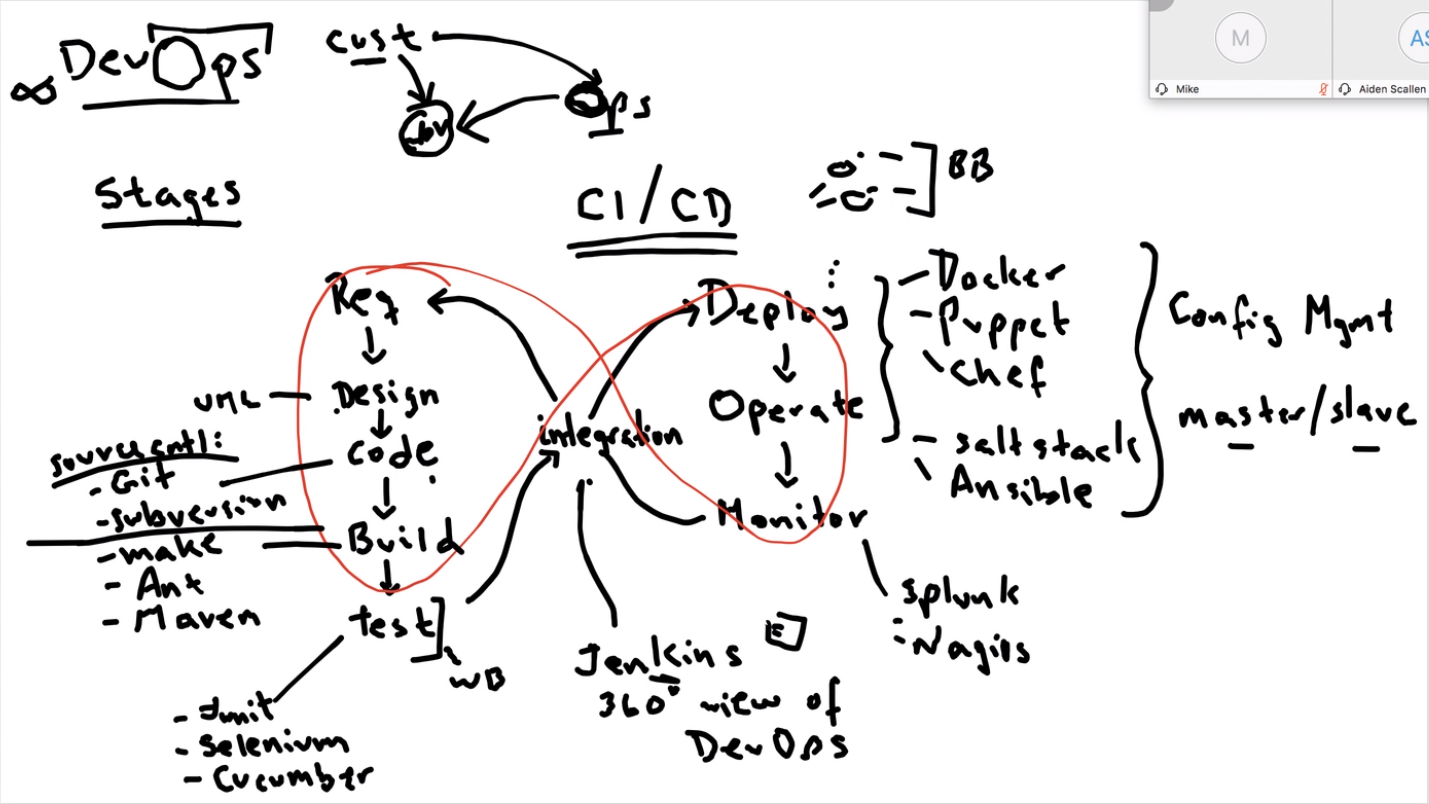 ∞ DevOps
cust
dev
Ops
M
AS
Mike
Aiden Scallen
Stages
CI/CD
BB
Req
Design
code
Build
test
WB
UML
source cntl:
- Git
- subversion
- make
- Ant
- Maven
- Junit
- Selenium
- Cucumber
integration
Jenkins
360° view of
DevOps
Deploy
Operate
Monitor
- Docker
- Puppet
- Chef
- saltstack
- Ansible
Config Mgmt
master/slave
splunk
- Nagios